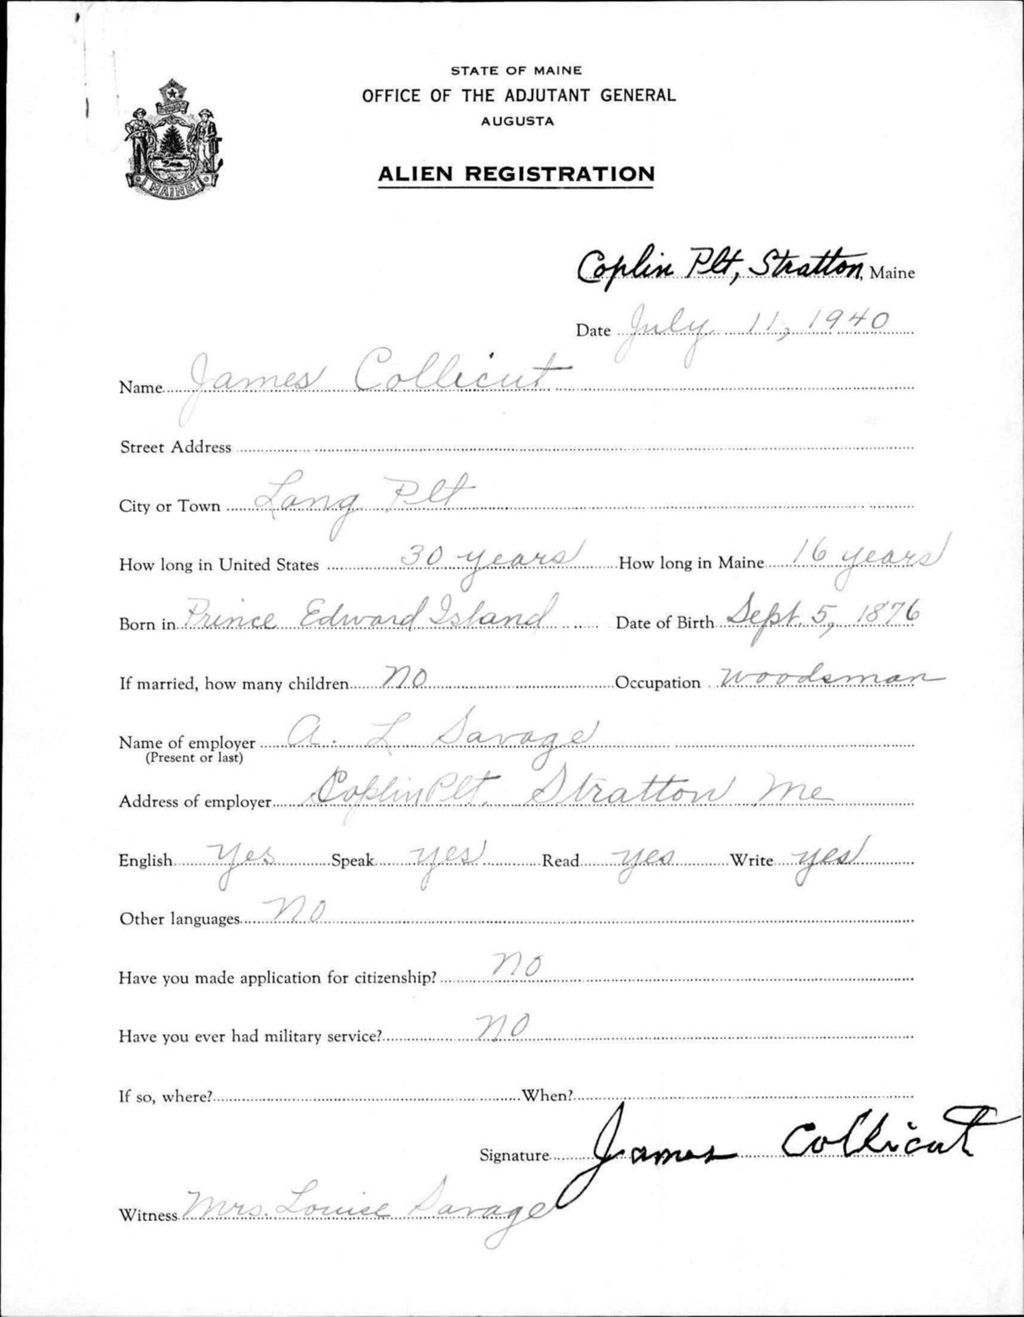 STATE OF MAINE
OFFICE OF THE ADJUTANT GENERAL
AUGUSTA
ALIEN REGISTRATION
MAINE
Coplin Plt, Stratton, Maine
Date July 11, 1940
Name James Collicut
Street Address
City or Town Lang Plt
How long in United States 30 years How long in Maine 16 years
Born in Prince Edward Island Date of Birth Sept. 5, 1876
If married, how many children NO Occupation woodsman
Name of employer A. L Savage
(Present or last)
Address of employer Coplin Plt. Stratton Me
English Yes Speak yes Read yes Write yes
Other languages NO
Have you made application for citizenship? NO
Have you ever had military service? NO
If so, where? When?
Signature James Collicut
Witness Mrs. Louise Savage